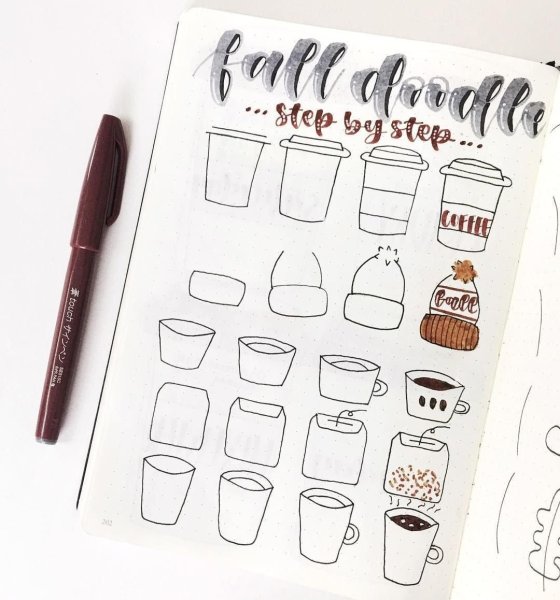 fall doodle
... step by step ...
COFFEE
筆touch サインペン
202